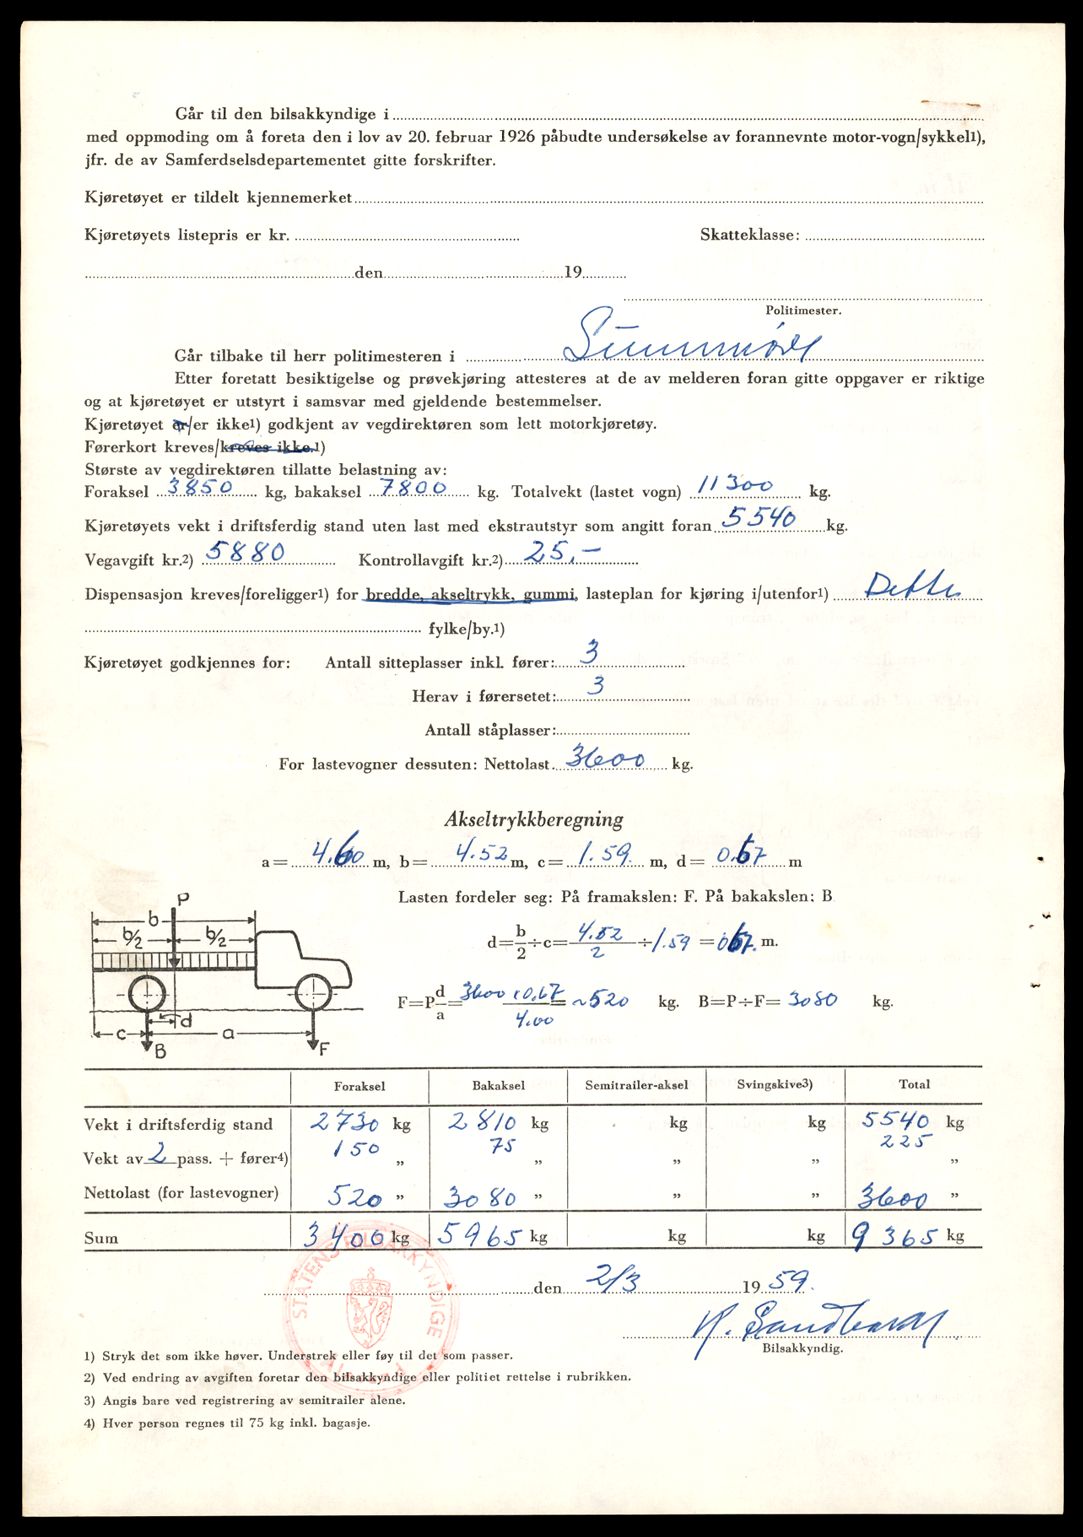 Går til den bilsakkyndige i
med oppmoding om å foreta den i lov av 20. februar 1926 påbudte undersøkelse av forannevnte motor-vogn/sykkel1),
jfr. de av Samferdselsdepartementet gitte forskrifter.
Kjøretøyet er tildelt kjennemerket
Kjøretøyets listepris er kr. Skatteklasse:
den 19
Politimester.
Går tilbake til herr politimesteren i Sunnmøre
Etter foretatt besiktigelse og prøvekjøring attesteres at de av melderen foran gitte oppgaver er riktige
og at kjøretøyet er utstyrt i samsvar med gjeldende bestemmelser.
Kjøretøyet er/er ikke1) godkjent av vegdirektøren som lett motorkjøretøy.
Førerkort kreves/kreves ikke.1)
Største av vegdirektøren tillatte belastning av:
Foraksel 3850 kg, bakaksel 7800 kg. Totalvekt (lastet vogn) 11300 kg.
Kjøretøyets vekt i driftsferdig stand uten last med ekstrautstyr som angitt foran 5540 kg.
Vegavgift kr.2) 5880 Kontrollavgift kr.2) 25,—
Dispensasjon kreves/foreligger1) for bredde, akseltrykk, gummi, lasteplan for kjøring i/utenfor1) Dette
fylke/by.1)
Kjøretøyet godkjennes for: Antall sitteplasser inkl. fører: 3
Herav i førersetet: 3
Antall ståplasser:
For lastevogner dessuten: Nettolast 3600 kg.
Akseltrykkberegning
a = 4.60 m, b = 4.52 m, c = 1.59 m, d = 0.67 m
Lasten fordeler seg: På framakslen: F. På bakakslen: B
d = b/2 ÷ c = 4.52/2 ÷ 1.59 = 0.67. m.
F = P d/a = 3600 x 0.67/4.60 = ~520 kg. B = P ÷ F = 3080 kg.
P
b
b/2 b/2
c d a
B F
Foraksel Bakaksel Semitrailer-aksel Svingskive3) Total
Vekt i driftsferdig stand 2730 kg 2810 kg kg kg 5540 kg
Vekt av 2 pass. + fører4) 150 „ 75 „ „ „ 225 „
Nettolast (for lastevogner) 520 „ 3080 „ „ „ 3600 „
Sum 3400 kg 5965 kg kg kg 9365 kg
STATENS BILSAKKYNDIGE
den 2/3 1959.
Bilsakkyndig.
1) Stryk det som ikke høver. Understrek eller føy til det som passer.
2) Ved endring av avgiften foretar den bilsakkyndige eller politiet rettelse i rubrikken.
3) Angis bare ved registrering av semitrailer alene.
4) Hver person regnes til 75 kg inkl. bagasje.